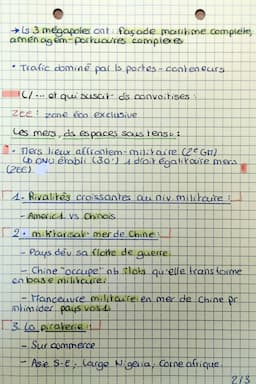 → Ls 3 mégapoles ont : façade maritime complète,
aménagem- portuaires complexes
• Trafic dominé par ls portes-conteneurs
C/ ... et qui suscit- ds convoitises :
ZEE : zone éco exclusive
Les mers, ds espaces sous tens° :
- Mers lieux affrontem- militaire (2e GM)
↳ ONU établi (30') 1 droit égalitaire mers
(ZEE)
1. Rivalités croissantes au niv. militaire :
- Améric1 vs Chinois
2. militarisat° mer de Chine :
- Pays dév sa flotte de guerre.
- Chine "occupe" nb îlots qu'elle transforme
en base militaire.
- Manœuvre militaire en mer de Chine pr
intimider pays vois1.
3. La piraterie :
- Sur commerce
- Asie S-E, large Nigéria, Corne afrique.
2/3